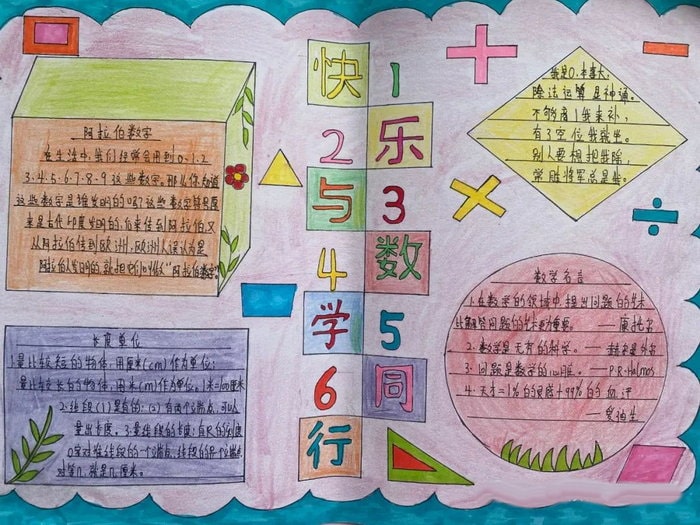 快
1
2
乐
与
3
4
数
学
5
6
同
行
阿拉伯数字
在生活中,我们经常会用到0.1.2
3.4.5.6.7.8.9这些数字。那么你知道
这些数字是谁发明的吗?这些数字
是古代印度发明的,后来传到阿拉伯,又
从阿拉伯传到欧洲,欧洲人误认为是
阿拉伯人发明的,就把它们叫做“阿拉伯数字”
长度单位
1.量比较短的物体,用厘米(cm)作为单位;
量比较长的物体,用米(m)作为单位。1米=100厘米
2.线段(1)是直的;(2)有两个端点,可以
量出长度。3.量线段的长度:
0字对准线段的一个端点,线段的另一个端点
对着几,就是几厘米。
我是0,本事大,
除法运算是神通。
不够商1我来补,
有了空位我就坐。
别人要想把我除,
常胜将军总是我。
数学名言
1.在数学的领域中,提出问题的艺术
比解答问题的艺术更为重要。——康托尔
2.数学是无穷的科学。——赫尔曼外尔
3.问题是数学的心脏。——P.R.Halmos
4.天才=1%的灵感+99%的血汗
——爱迪生